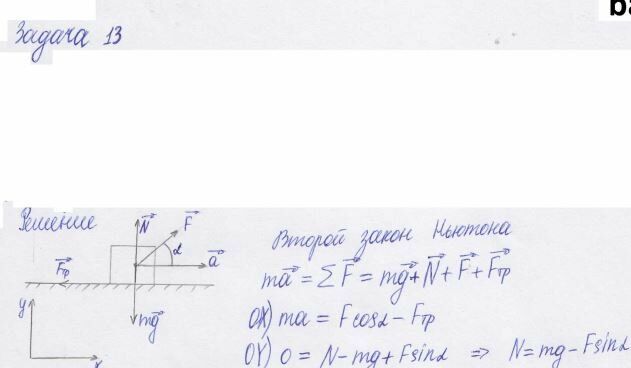 ba
Задача 13
Решение
N⃗ F⃗
α
a⃗
F⃗тр
mg⃗
y
x
Второй закон Ньютона
ma⃗ = ΣF⃗ = mg⃗ + N⃗ + F⃗ + F⃗тр
OX) ma = Fcosα − Fтр
OY) 0 = N − mg + Fsinα ⇒ N = mg − Fsinα